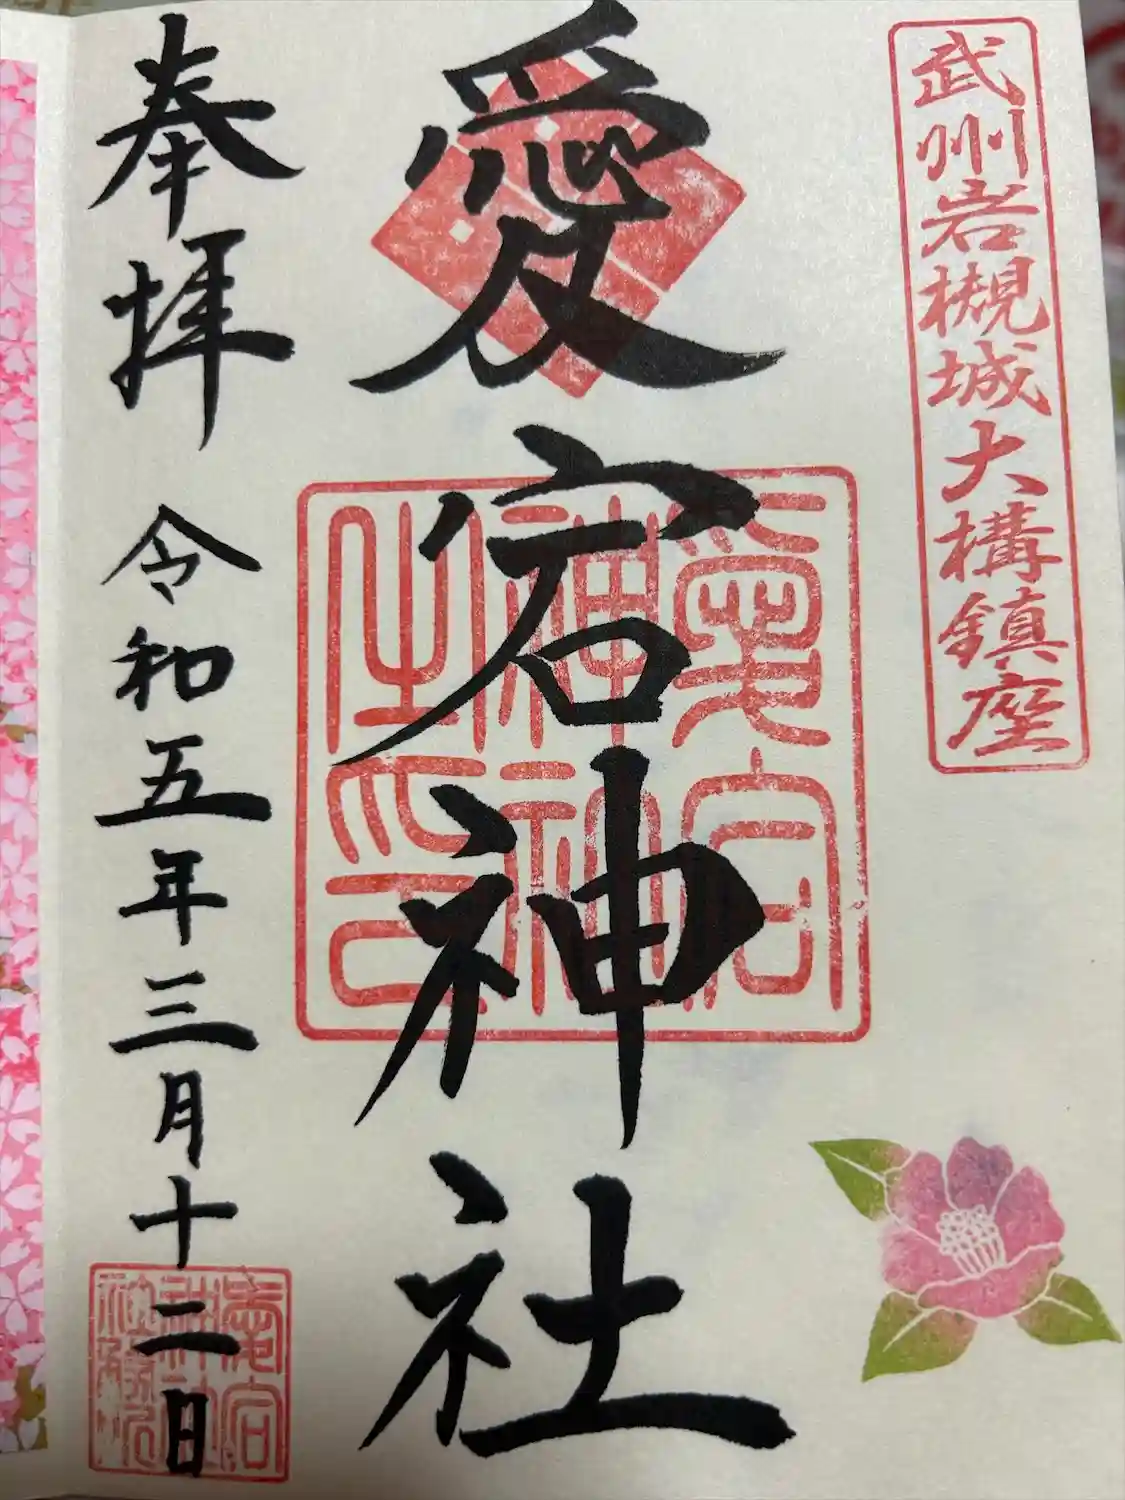 武州岩槻城大構鎮座
愛宕神社
奉拝
令和五年三月十二日
愛宕
神社
之印